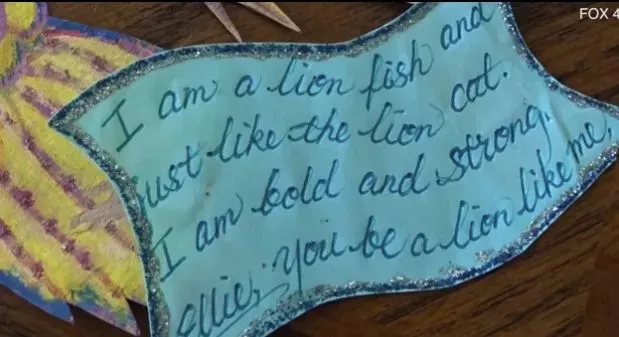 FOX 4
I am a lion fish and
just like the lion cat.
I am bold and strong.
you be a lion like me,